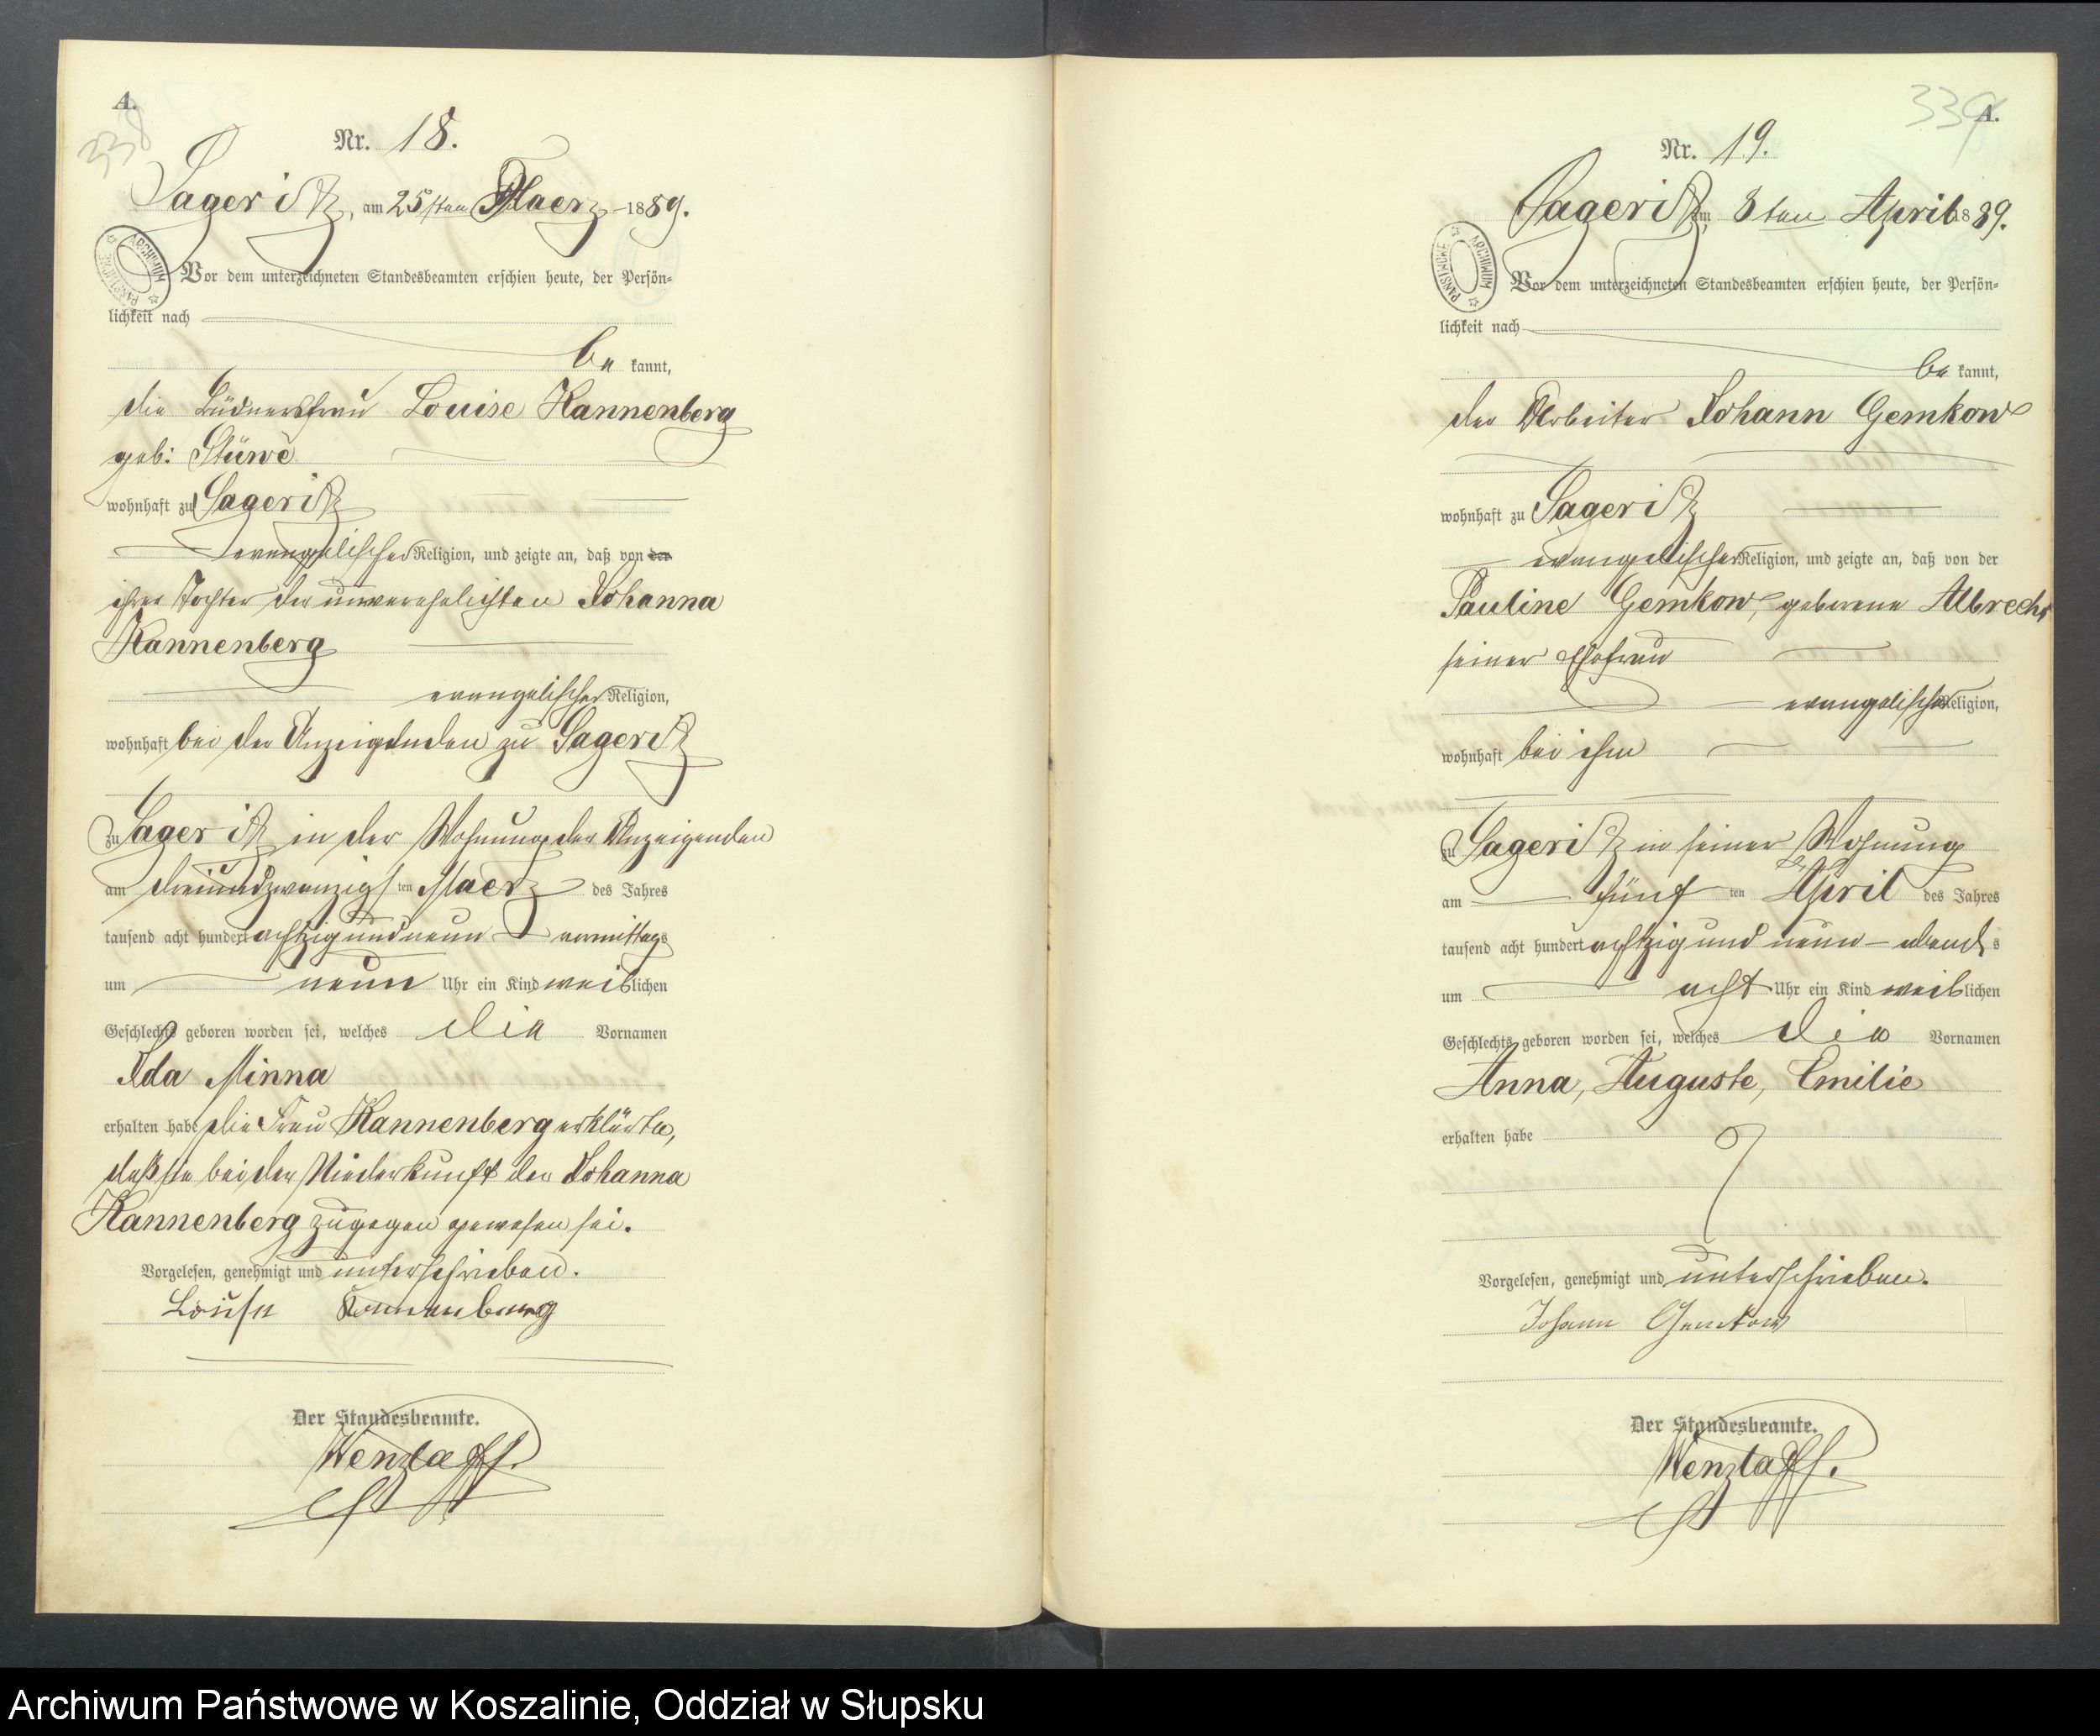 A.
338
Nr. 18.
Sageritz, am 25sten Maerz 1889.
Vor dem unterzeichneten Standesbeamten erschien heute, der Persön-
lichkeit nach
be kannt,
die Büdnersfrau Louise Kannenberg
geb: Stüwe
wohnhaft zu Sageritz
evangelischer Religion, und zeigte an, daß von der
ihrer Tochter der unverehelichten Johanna
Kannenberg
evangelischer Religion,
wohnhaft bei der Anzeigenden zu Sageritz
zu Sageritz in der Wohnung der Anzeigenden
am dreiundzwanzigsten Maerz des Jahres
tausend acht hundert achtzig und neun vormittags
um neun Uhr ein Kind weiblichen
Geschlechts geboren worden sei, welches die Vornamen
Ida Minna
erhalten habe die Frau Kannenberg erklärte,
daß sie bei der Niederkunft der Johanna
Kannenberg zugegen gewesen sei.
Vorgelesen, genehmigt und unterschrieben.
Louise Kannenberg
Der Standesbeamte.
Wenzlaff.
ARCHIWUM PAŃSTWOWE
339
A.
Nr. 19.
Sageritz, am 8ten April 1889.
Vor dem unterzeichneten Standesbeamten erschien heute, der Persön-
lichkeit nach
be kannt,
der Arbeiter Johann Gemkow
wohnhaft zu Sageritz
evangelischer Religion, und zeigte an, daß von der
Pauline Gemkow, geborene Albrecht
seiner Ehefrau
evangelischer Religion,
wohnhaft bei ihm
zu Sageritz in seiner Wohnung
am fünften April des Jahres
tausend acht hundert achtzig und neun abends
um acht Uhr ein Kind weiblichen
Geschlechts geboren worden sei, welches die Vornamen
Anna, Auguste, Emilie
erhalten habe
Vorgelesen, genehmigt und unterschrieben.
Johann Gemkow
Der Standesbeamte.
Wenzlaff.
ARCHIWUM PAŃSTWOWE
Archiwum Państwowe w Koszalinie, Oddział w Słupsku